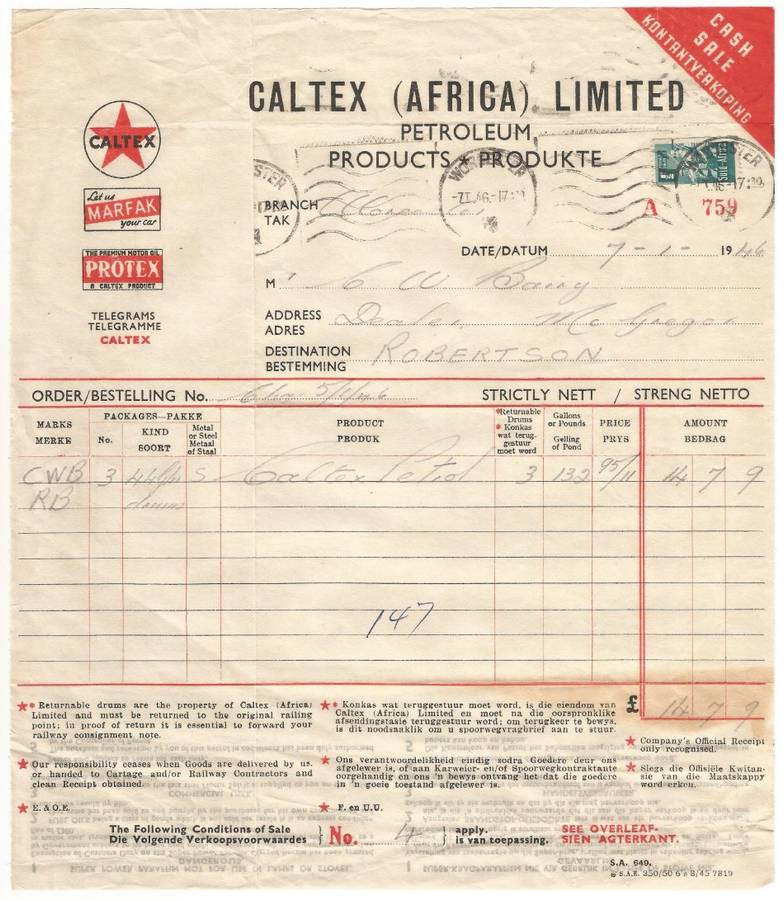 CASH
SALE
KONTANTVERKOPING
CALTEX (AFRICA) LIMITED
PETROLEUM
PRODUCTS PRODUKTE
CALTEX
Let us
MARFAK
your car
THE PREMIUM MOTOR OIL
PROTEX
A CALTEX PRODUCT
TELEGRAMS
TELEGRAMME
CALTEX
WORCESTER
-7 I 46-17
BRANCH
TAK
Worcester
A 759
DATE/DATUM 7-1- 1946
M C W Barry
ADDRESS
ADRES
Dealer, McGregor
DESTINATION
BESTEMMING
ROBERTSON
ORDER/BESTELLING No. 5/1/46
STRICTLY NETT / STRENG NETTO
MARKS
MERKE
PACKAGES—PAKKE
No.
KIND
SOORT
Metal
or Steel
Metaal
of Staal
PRODUCT
PRODUK
*Returnable
Drums
* Konkas
wat terug-
gestuur
moet word
Gallons
or Pounds
Gelling
of Pond
PRICE
PRYS
AMOUNT
BEDRAG
CWB 3 S Caltex Petrol 3 132 95/11 14 7 9
RB drums
147
£ 14 7 9
* Returnable drums are the property of Caltex (Africa)
Limited and must be returned to the original railing
point; in proof of return it is essential to forward your
railway consignment note.
Our responsibility ceases when Goods are delivered by us,
or handed to Cartage and/or Railway Contractors and
clean Receipt obtained.
E. & O. E.
* Konkas wat teruggestuur moet word, is die eiendom van
Caltex (Africa) Limited en moet na die oorspronklike
afsendingstasie teruggestuur word; om terugkeer te bewys,
is dit noodsaaklik om u spoorwegvragbrief aan te stuur.
Ons verantwoordelikheid eindig sodra Goedere deur ons
afgelewer is, of aan Karweier- en/of Spoorwegkontraktante
oorgehandig en ons 'n bewys ontvang het dat die goedere
in 'n goeie toestand afgelewer is.
F. en U.U.
Company's Official Receipt
only recognised.
Slegs die Offisiële Kwitan-
sie van die Maatskappy
word erken.
The Following Conditions of Sale
Die Volgende Verkoopsvoorwaardes
No. 4
apply.
is van toepassing.
SEE OVERLEAF-
SIEN AGTERKANT.
S.A. 649.
S.A.E. 350/50 6's 8/45 7819